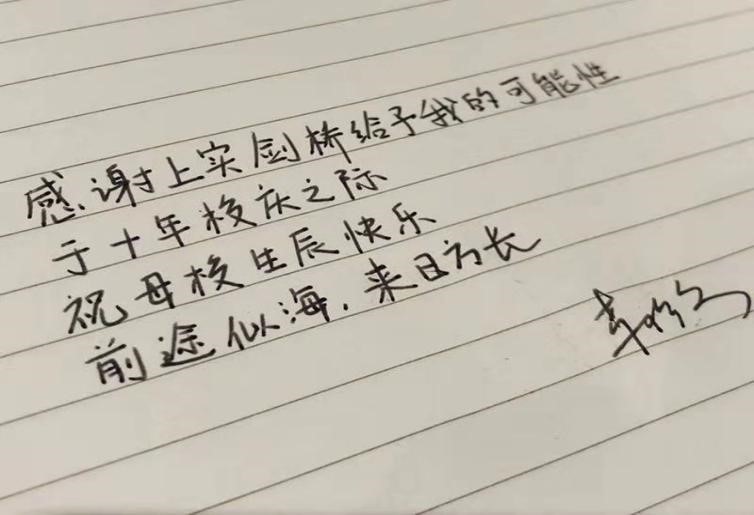 感谢上实剑桥给予我的可能性
于十年校庆之际
祝母校生辰快乐
前途似海，来日方长